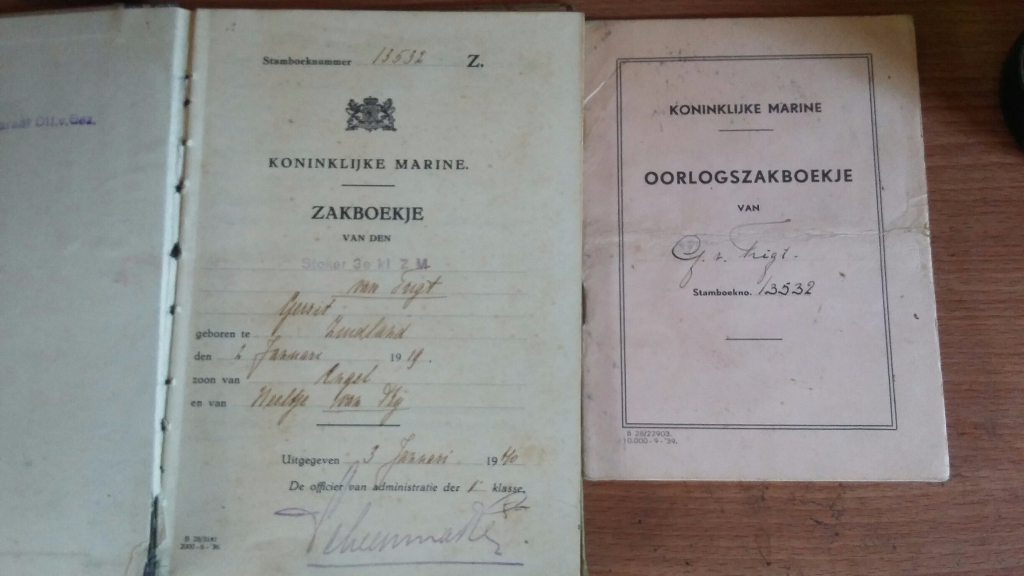 Stamboeknummer 13532 Z.
KONINKLIJKE MARINE.
ZAKBOEKJE
VAN DEN
Stoker 3e kl Z.M.
van
Gerrit
geboren te
den 2 Januari 1919.
zoon van Engel
en van Neeltje van
Uitgegeven 3 Januari 1940
De officier van administratie der 1e klasse,
KONINKLIJKE MARINE
OORLOGSZAKBOEKJE
VAN
G. v.
Stamboekno. 13532
B 28/22903.
10.000-9-'39.